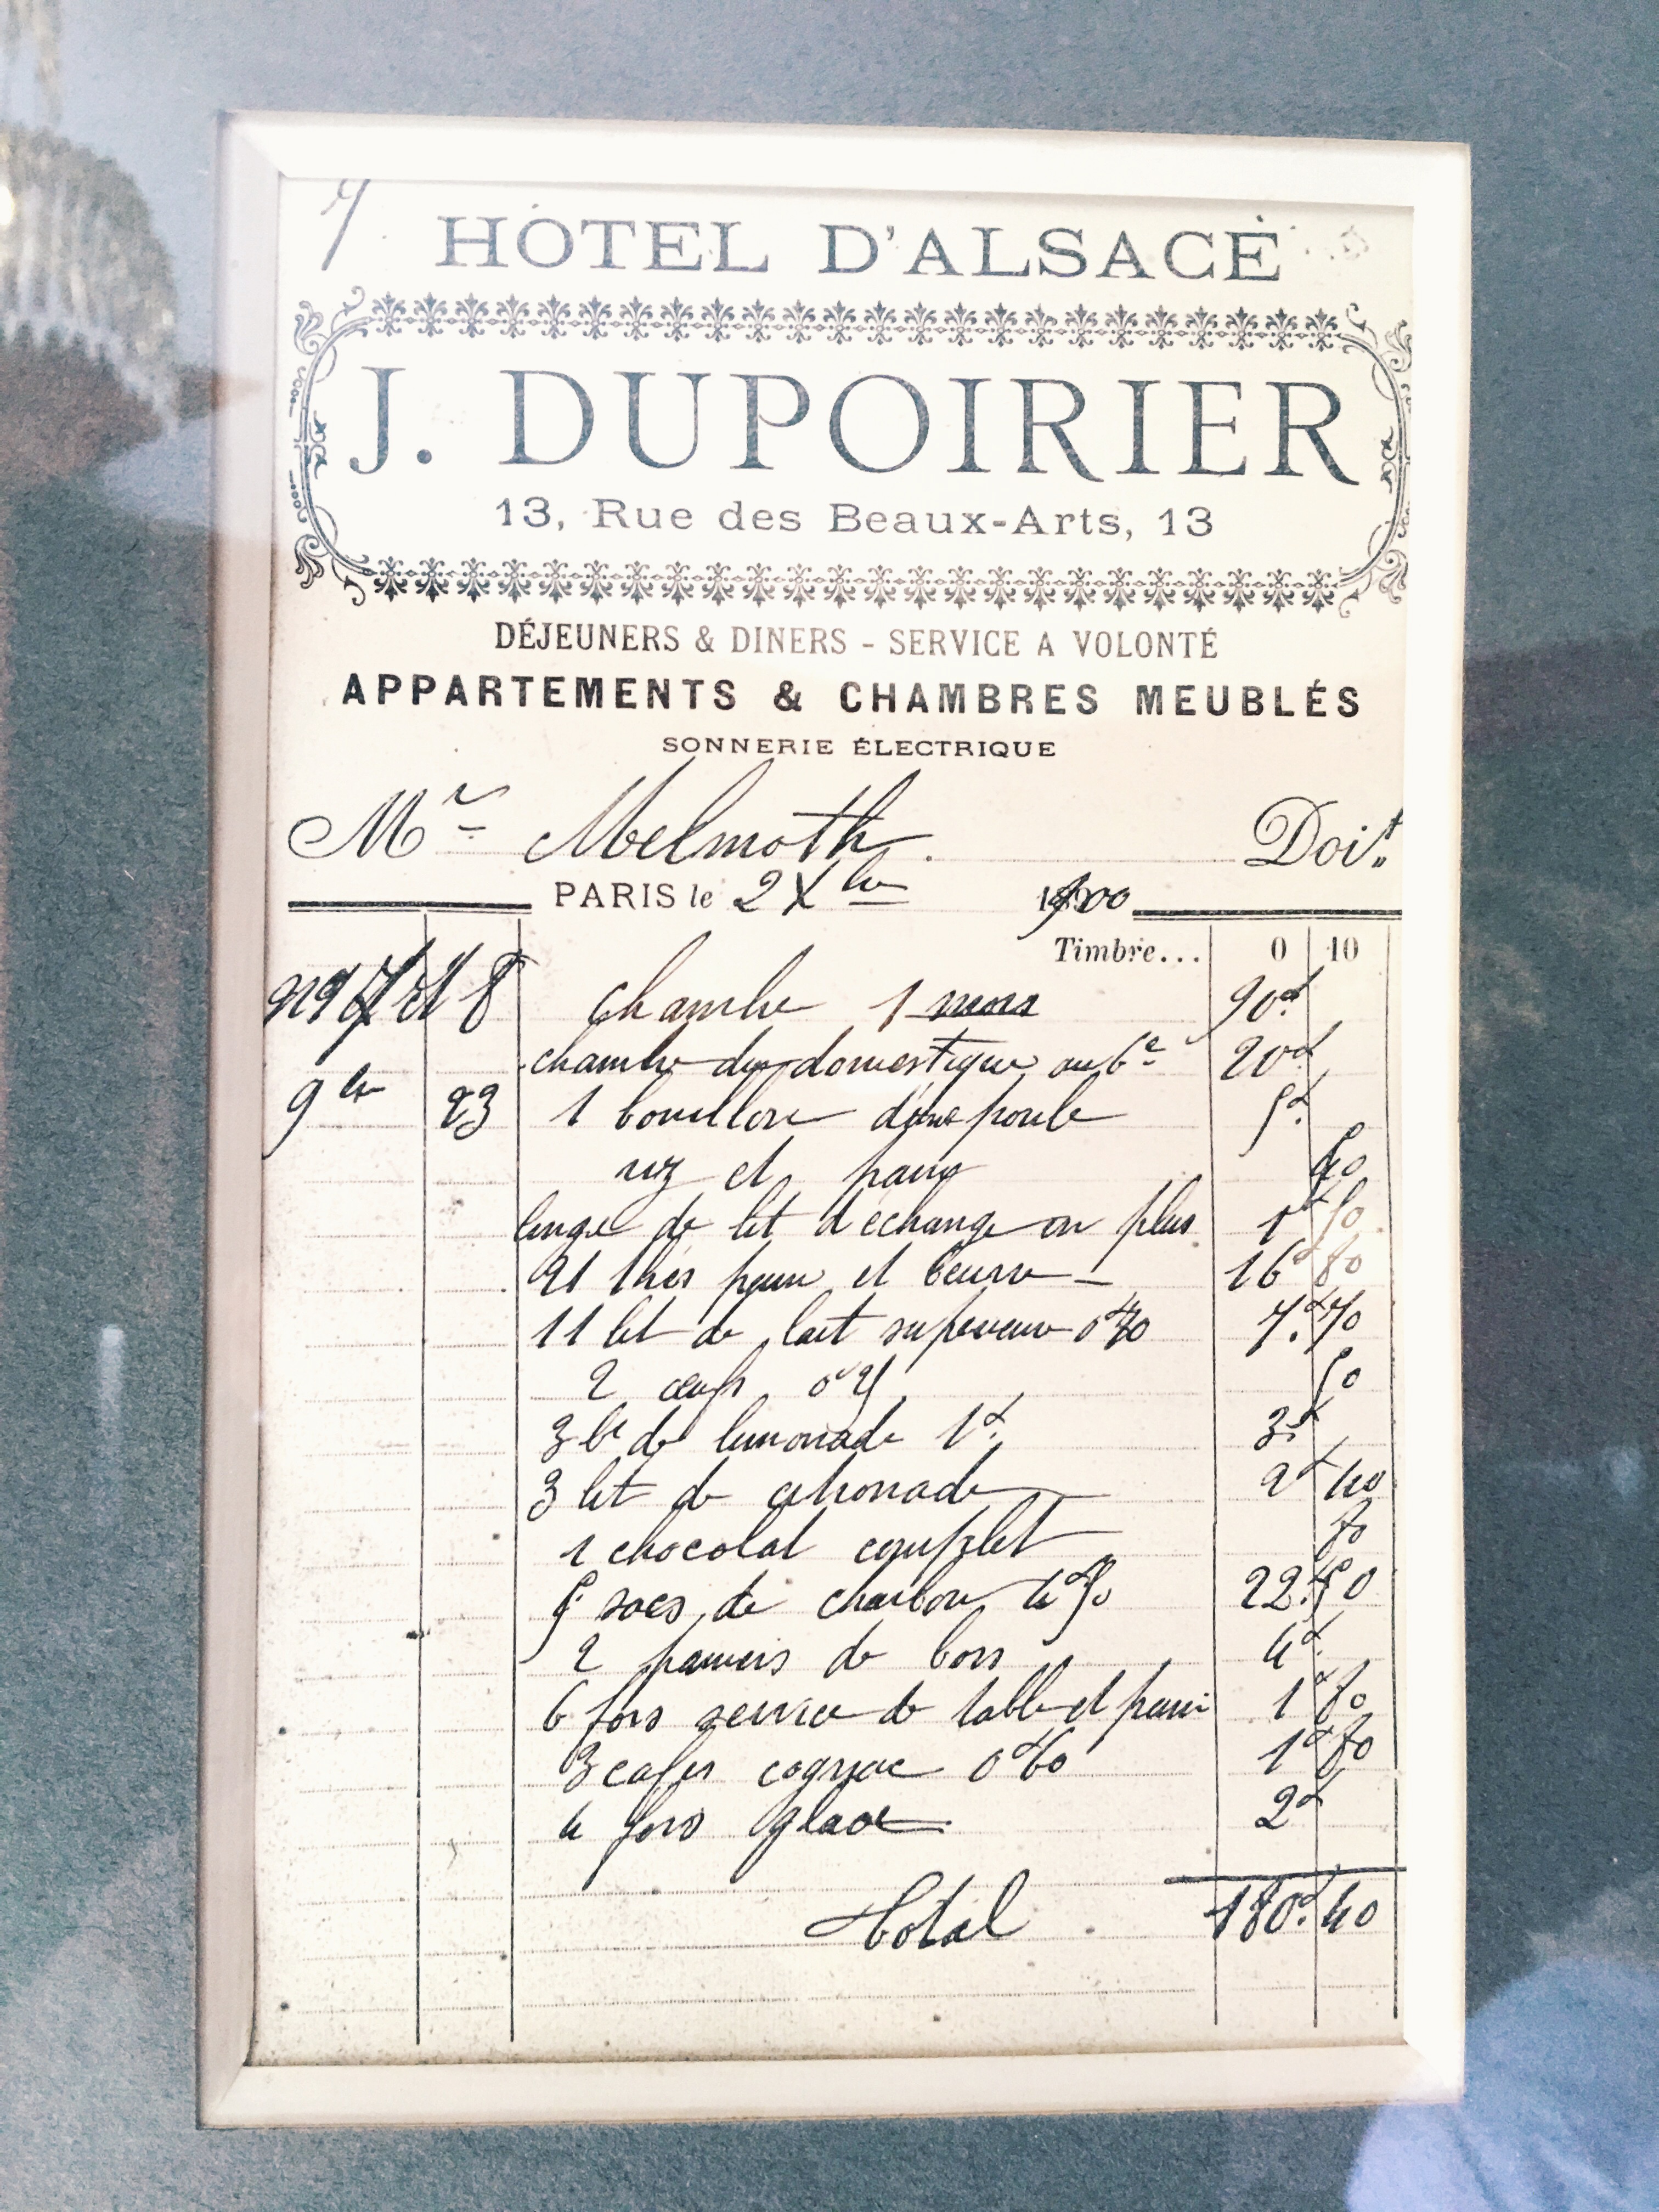 HÔTEL D'ALSACE
J. DUPOIRIER
13, Rue des Beaux-Arts, 13
DÉJEUNERS & DINERS - SERVICE A VOLONTÉ
APPARTEMENTS & CHAMBRES MEUBLÉS
SONNERIE ÉLECTRIQUE
Mr Melmoth. Doit
PARIS le 2 Xbre 1900
Timbre... 0 10
chambre 1 mois 90f
chambre du domestique au 6e 20f
9bre 23 1 bouillon d'une poule 5f
riz et pain 60
linge de lit d'échange en plus 1f 50
21 thés pain et beurre 16f 80
11 lit de lait supérieur 0f70 7f 70
2 œufs 0f25 50
3 be de limonade 1f 3f
3 lit de citronade 2f 40
1 chocolat complet 80
5 sacs de charbon 4f50 22f 50
2 paniers de bois 4f
6 fois service de table et pain 1f 80
3 cafés cognac 0f60 1f 80
4 fois glace 2f
Total 180f 40